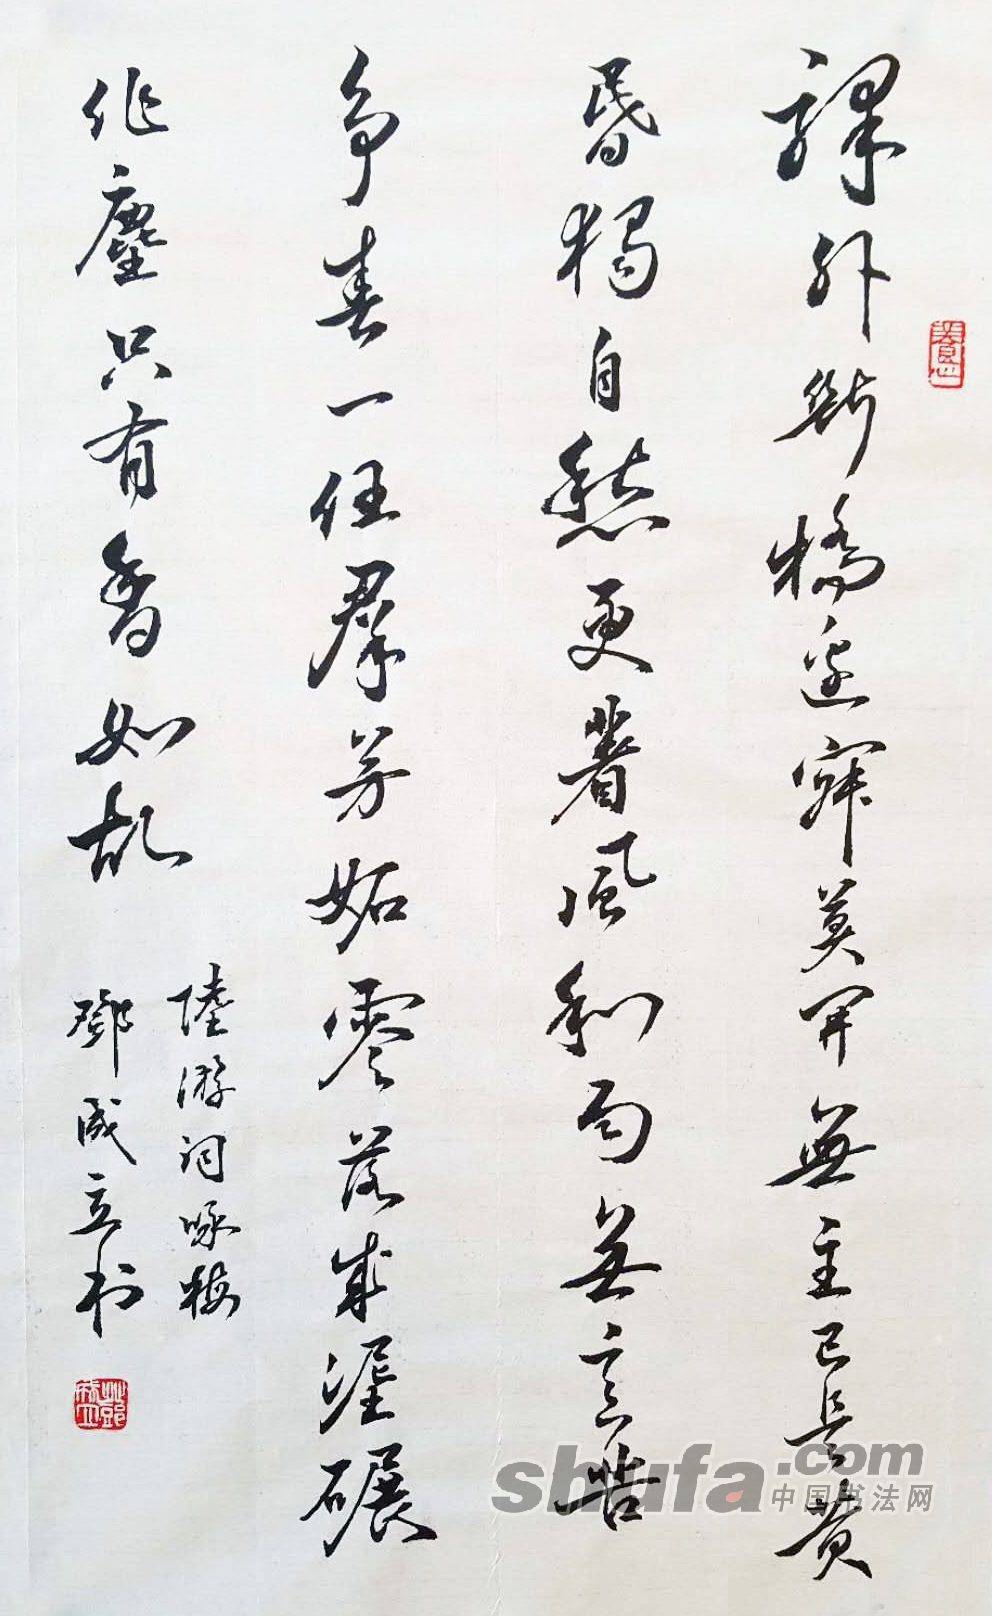 驛外斷橋邊寂莫開無主已是黄
昏獨自愁更著風和雨無意苦
争春一任羣芳妬零落成埿碾
作塵只有香如故
陸游詞咏梅
鄧成立书
shufa.com
中国书法网